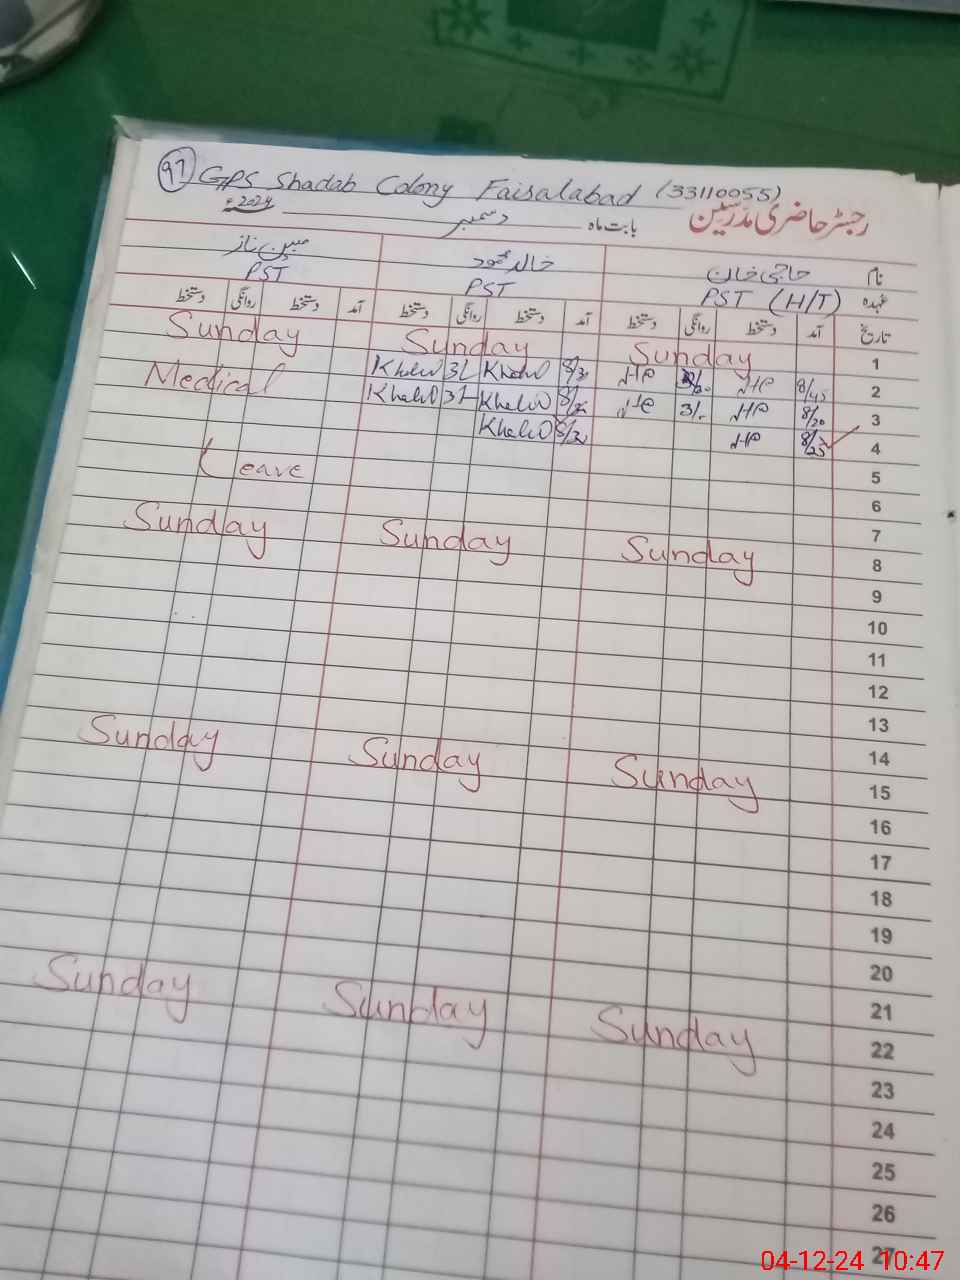 97 GPS Shadab Colony Faisalabad (33110055)
رجسٹر حاضری مدرسین بابت ماہ دسمبر 2024ء
نام حاجی خان خالد محمود مبین ناز
عہدہ PST (H/T) PST PST
تاریخ آمد دستخط روانگی دستخط آمد دستخط روانگی دستخط آمد دستخط روانگی دستخط
1 Sunday Sunday Sunday
2 8/45 8/30 Medical
3 8/20
4 8/25 8/30
5 Leave
6
7
8 Sunday Sunday Sunday
9
10
11
12
13
14
15 Sunday Sunday Sunday
16
17
18
19
20
21
22 Sunday Sunday Sunday
23
24
25
26
27
04-12-24 10:47